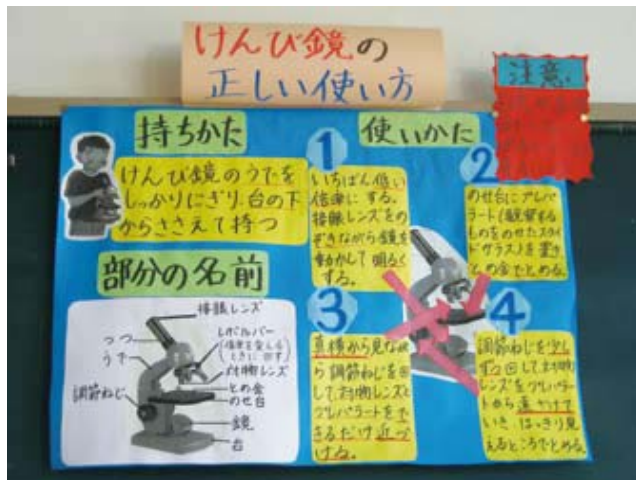 けんび鏡の
正しい使い方
注意
持ちかた
けんび鏡のうでを
しっかりにぎり、台の下
からささえて持つ
部分の名前
接眼レンズ
つつ
うで
調節ねじ
レボルバー
(倍率を変える
ときに回す)
対物レンズ
とめ金
のせ台
鏡
台
使いかた
1
いちばん低い
倍率にする。
接眼レンズをの
ぞきながら鏡を
動かして明るく
する。
2
のせ台にプレパ
ラート(観察する
ものをのせたスライ
ドガラス)を置き
とめ金でとめる。
3
真横から見なが
ら調節ねじを回
して、対物レンズと
プレパラートをで
きるだけ近づ
ける。
4
調節ねじを少し
ずつ回して対物
レンズをプレパラー
トから遠ざけて
いき、はっきり見
えるところでとめる。